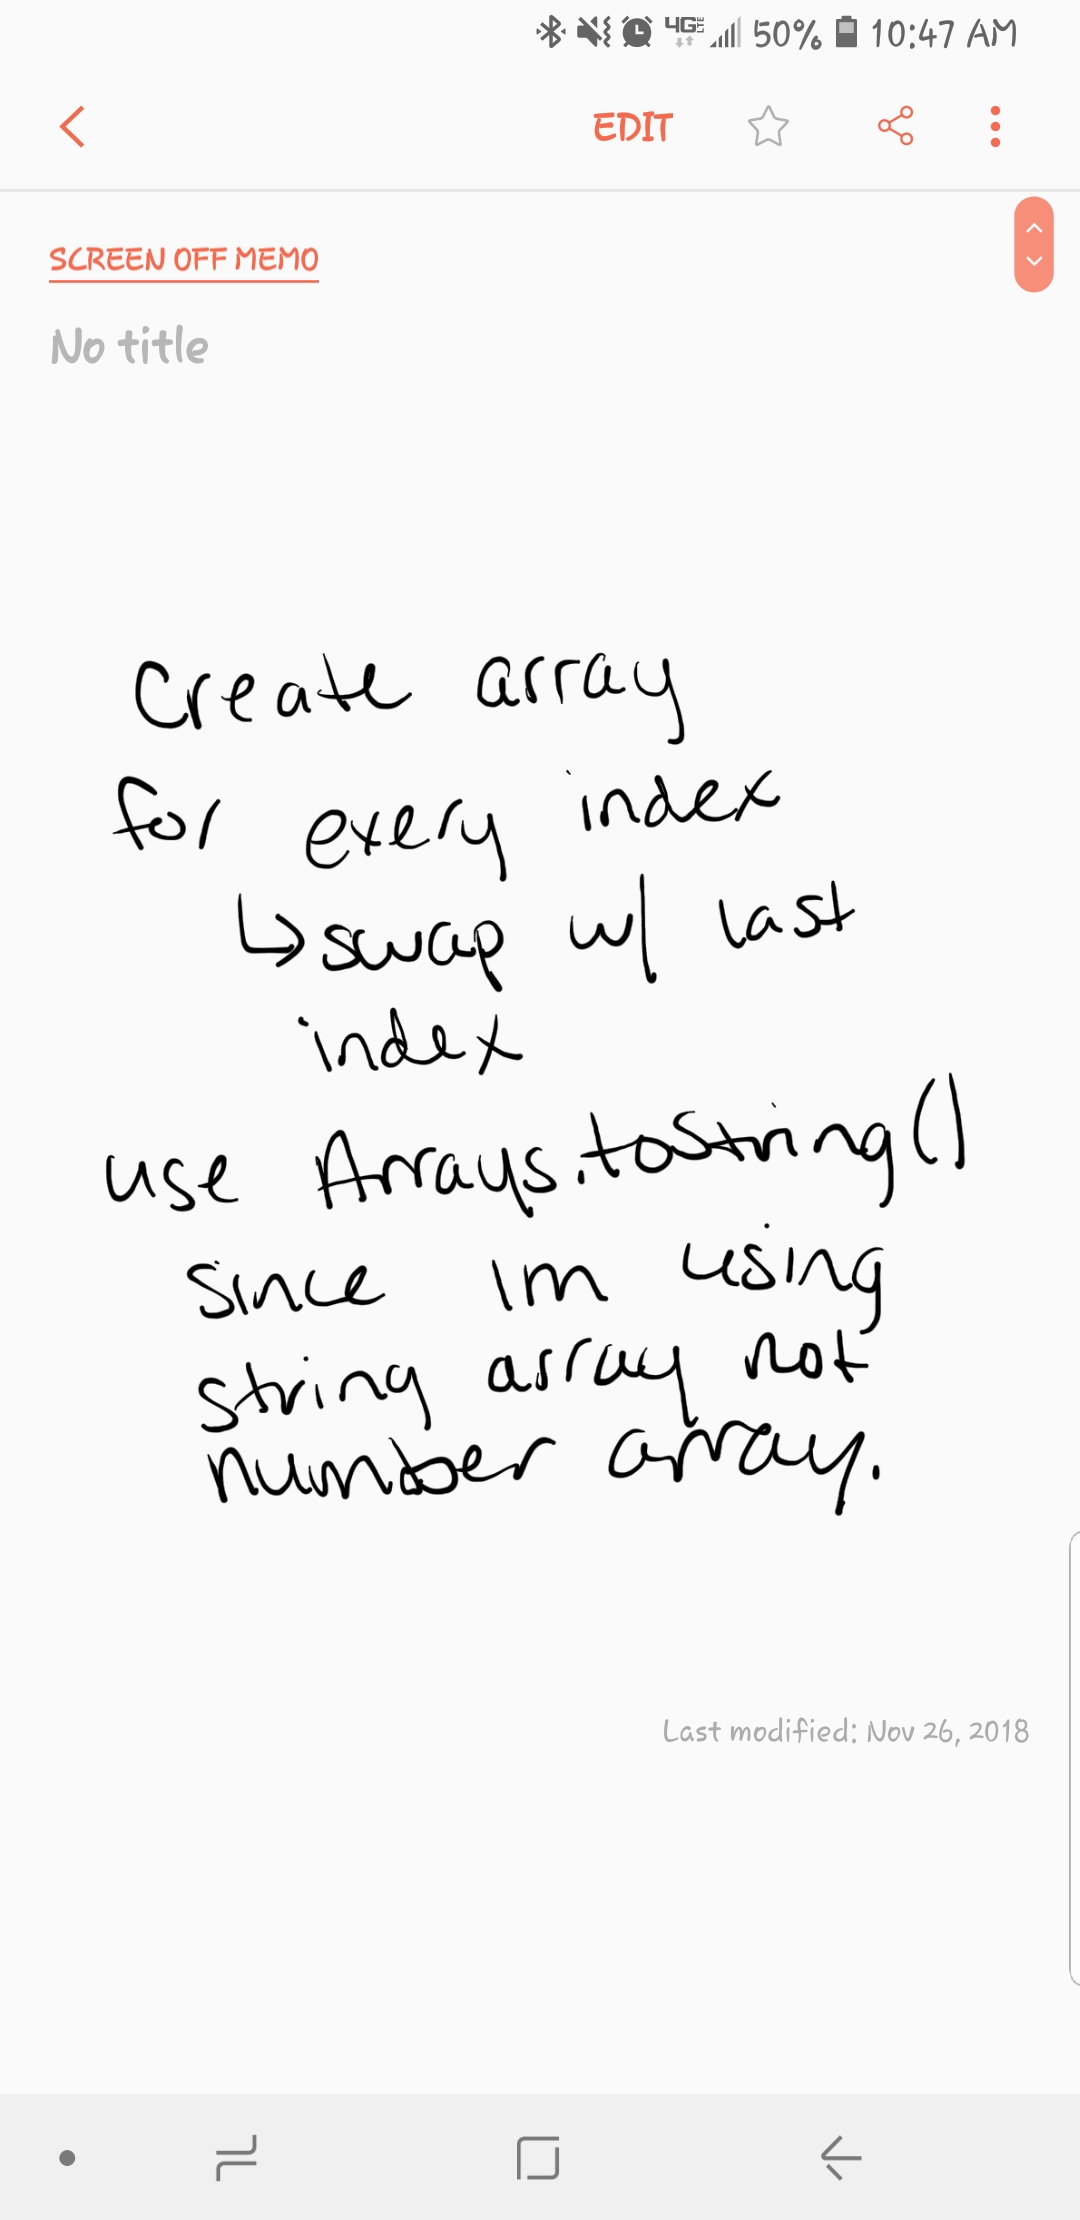 50% 10:47 AM
EDIT
SCREEN OFF MEMO
No title
Create array
for every index
↳ swap w/ last
index
use Arrays.toString()
since im using
string array not
number array.
Last modified: Nov 26, 2018